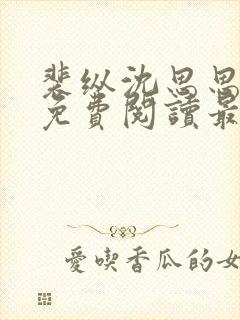 裴纵沈思思
免費閱讀最
愛喫香瓜的女